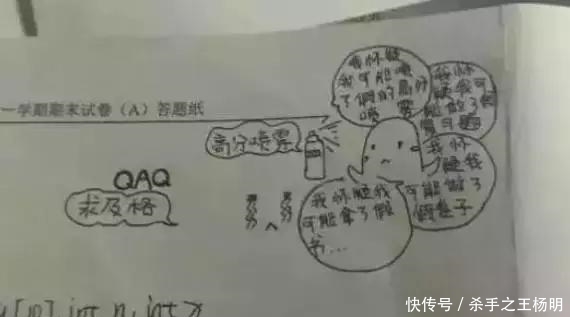 我怀疑
我可能喷
了假的高分
喷雾
我怀
疑我可
能做了假
一学期期末试卷（A）答题纸
高分喷雾
我怀
疑我
可能做了
假卷子
QAQ
求及格
我怀疑我
可能拿了假
书...
int n, int x
快传号／杀手之王杨明